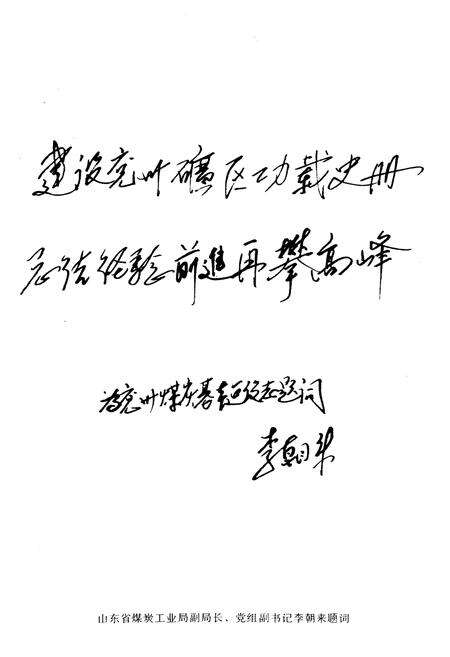 建设兖州礦区功载史册
总结经验前進再攀高峰
为兖州煤炭基建史志题词
李朝来
山东省煤炭工业局副局长、党组副书记李朝来题词